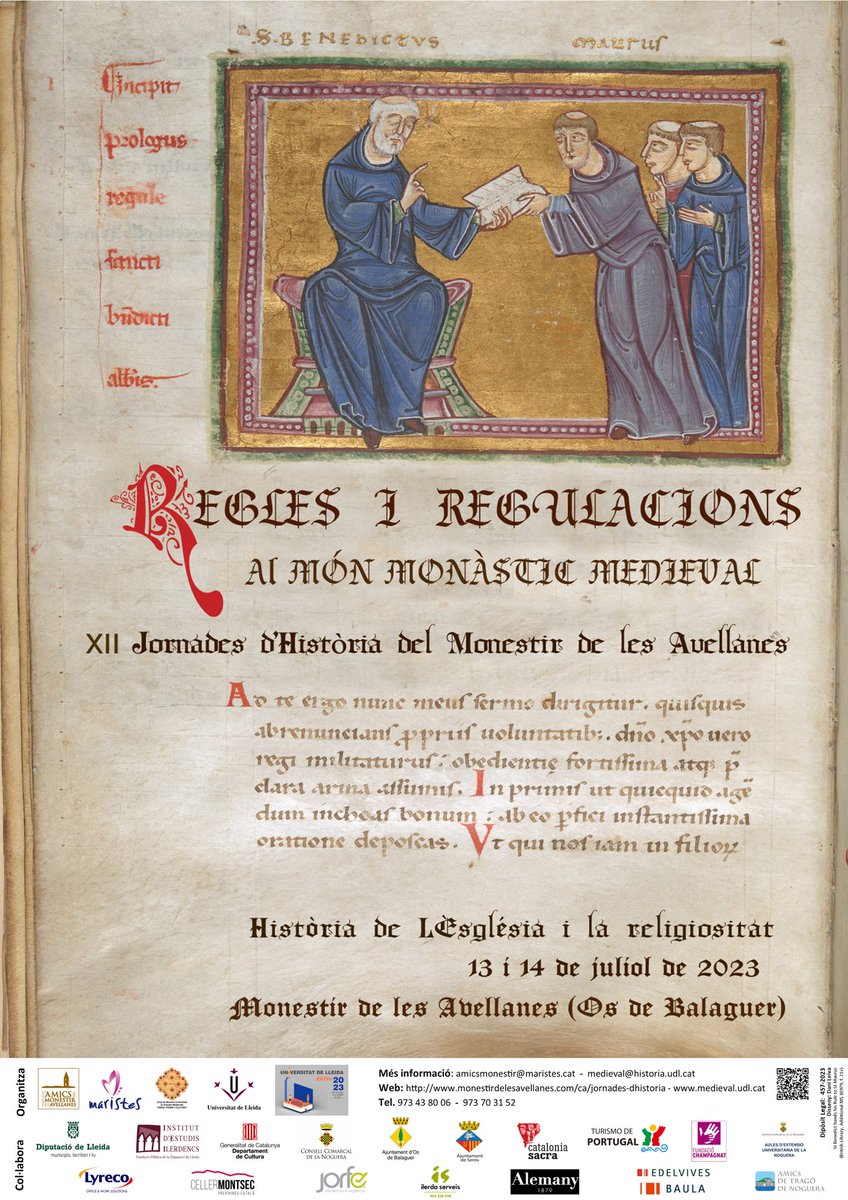 S. BENEDICTVS MAURUS
Incipit
prologus
regule
sancti
REGLES I REGULACIONS
Al MÓN MONÀSTIC MEDIEVAL
XII Jornades d'Història del Monestir de les Avellanes
Ad te ergo nunc meus sermo dirigitur. quisquis
abrenuncians propriis voluntatib; dño xpo vero
regi militaturus; obedientię fortissima atq; p̄
clara arma assumis. In primis ut quicquid agen̄
dum inchoas bonum; ab eo p̄fici instantissima
oratione deposcas. Vt qui nos iam in filioꝝ
Història de L'Església i la religiositat
13 i 14 de juliol de 2023
Monestir de les Avellanes (Os de Balaguer)
Organitza
AMICS
MONESTIR
AVELLANES
maristes
Universitat de Lleida
UNIVERSITAT DE LLEIDA
ESTIU
2023
Més informació: amicsmonestir@maristes.cat - medieval@historia.udl.cat
Web: http://www.monestirdelesavellanes.com/ca/jornades-dhistoria - www.medieval.udl.cat
Tel. 973 43 80 06 - 973 70 31 52
Dipòsit Legal: 457-2023
Col·labora
Diputació de Lleida
municipis, territori i tu
INSTITUT
D'ESTUDIS
ILERDENCS
Fundació Pública de la Diputació de Lleida
Generalitat de Catalunya
Departament
de Cultura
CONSELL COMARCAL
DE LA NOGUERA
Ajuntament d'Os
de Balaguer
Ajuntament
de Seròs
catalonia
sacra
TURISMO DE
PORTUGAL
FUNDACIÓ
CHAMPAGNAT
AULES D'EXTENSIÓ
UNIVERSITÀRIA DE LA
NOGUERA
Lyreco
OFFICE & WORK SOLUTIONS
CELLERMONTSEC
PREPIRINEU CATALÀ
jorfe
ilerda serveis
Alemany
1879
EDELVIVES
BAULA
AMICS
DE TRAGÓ
DE NOGUERA